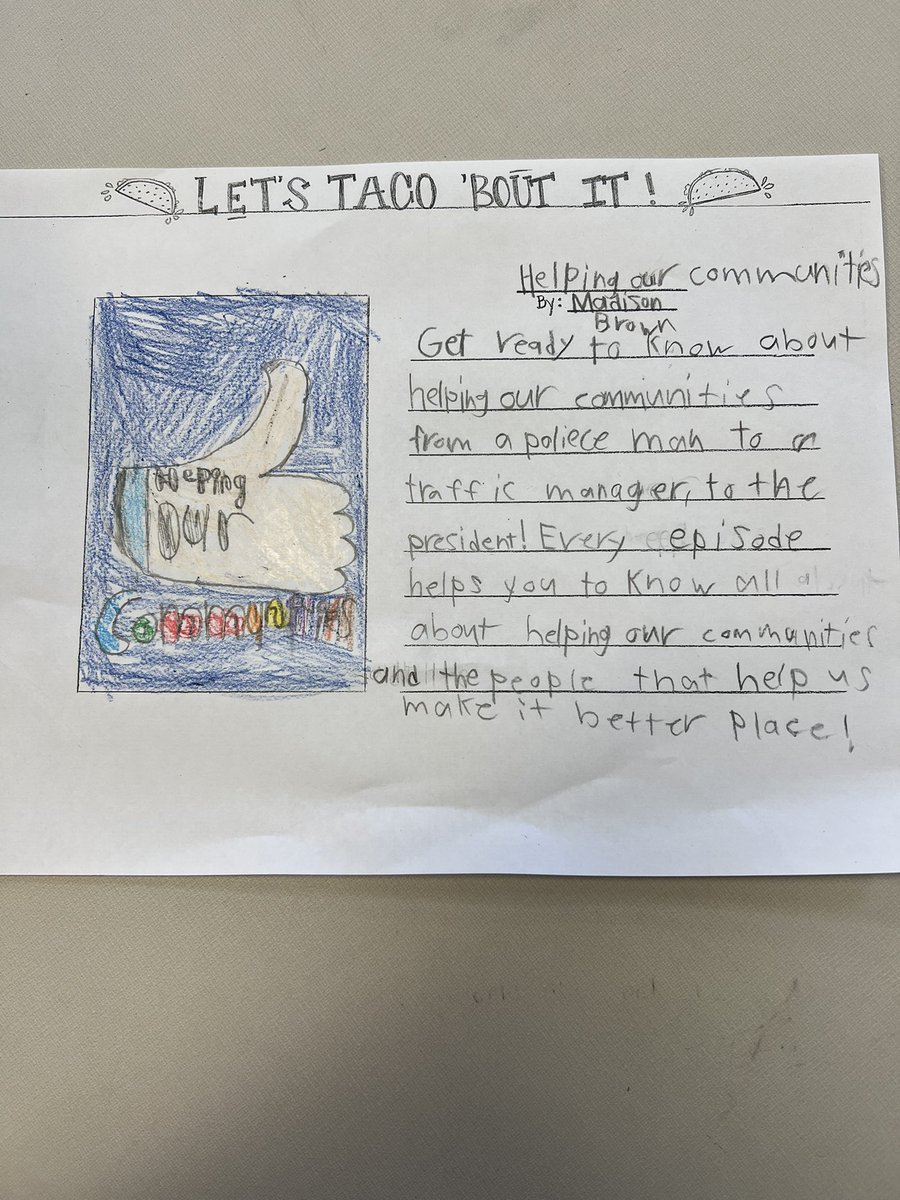 LET'S TACO 'BOUT IT!
Helping our communities
By: Madison
Brown
Get ready to know about
helping our communities
from a poliece man to a
traffic manager, to the
president! Every episode
helps you to know all
about helping our communities
and the people that help us
make it better place!
Heping
Our
Communities